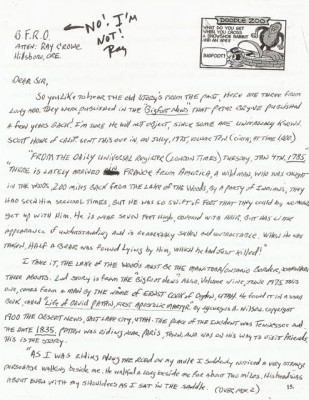 B.F.R.O.
ATTEN: RAY CROWE
Hillsboro, ORE.
NO! I'M
NOT!
Ray
DOODLE ZOO
WHAT DO YOU GET
WHEN YOU CROSS
A SNOWSHOE RABBIT
AND AN APE?
BIGFOOT!
DEAR SIR,
SO YOU LIKE TO HEAR THE OLD STORY'S FROM THE PAST, HERE ARE THREE FROM
LONG AGO. THEY WERE PUBLISHED IN THE "BIGFOOT NEWS" THAT PETER BYRNE PUBLISHED
A FEW YEARS BACK. I'M SURE HE WILL NOT OBJECT, SINCE SOME ARE
SCOTT HOWE OF CALIF. SENT THIS ONE IN, ON JULY, 1975,
"FROM THE DAILY UNIVERSAL REGISTER (LONDON TIMES) TUESDAY, JAN 4TH, 1785"
"THERE IS LATELY ARRIVED FRANCE FROM AMERICA, A WILDMAN, WHO WAS CAUGHT
IN THE WOODS, 200 MILES BACK FROM THE LAKE OF THE WOODS, BY A PARTY OF INDIANS, THEY
HAD SEEN HIM SEVERAL TIMES, BUT HE WAS SO SWIFT OF FOOT THAT THEY COULD BY NO MEANS
GET UP WITH HIM. HE IS NEAR SEVEN FEET HIGH, COVERED WITH HAIR, BUT HAS LITTLE
APPEARANCE OF UNDERSTANDING AND IS REMARKABLY SULLEN AND UNTRACTABLE. WHEN HE WAS
TAKEN, HALF A BEAR WAS FOUND LYING BY HIM, WHEN HE HAD JUST KILLED!"
I TAKE IT, THE LAKE OF THE WOODS MUST BE THE MANITOBA/ONTARIO BORDER,
THERE ABOUTS. 2nd STORY IS FROM THE "BIGFOOT NEWS" ALSO, VOLUME NINE, JUNE 1975 THIS
ONE, COMES FROM A MAN BY THE NAME OF ERNEST COOK OF OGDEN, UTAH. HE FOUND IT IN A
BOOK, CALLED "LIFE OF DAVID PATTEN, FIRST APOSTOLIC MARTYR" BY LYCURGUS A. WILSON. COPYRIGHT
1900 THE DESERET NEWS, SALT LAKE CITY, UTAH. THE PLACE OF THE INCIDENT WAS TENNESSEE AND
THE DATE 1835. PATTEN WAS RIDING NEAR PARIS, TENN. AND WAS ON HIS WAY TO VISIT FRIENDS,
THIS IS THE STORY:
"AS I WAS RIDING ALONG THE ROAD ON MY MULE I SUDDENLY NOTICED A VERY STRANGE
PERSONAGE WALKING BESIDE ME. HE WALKED ALONG BESIDE ME FOR ABOUT TWO MILES. HIS HEAD WAS
ABOUT EVEN WITH MY SHOULDERS AS I SAT IN THE SADDLE.
(OVER PAGE 2)